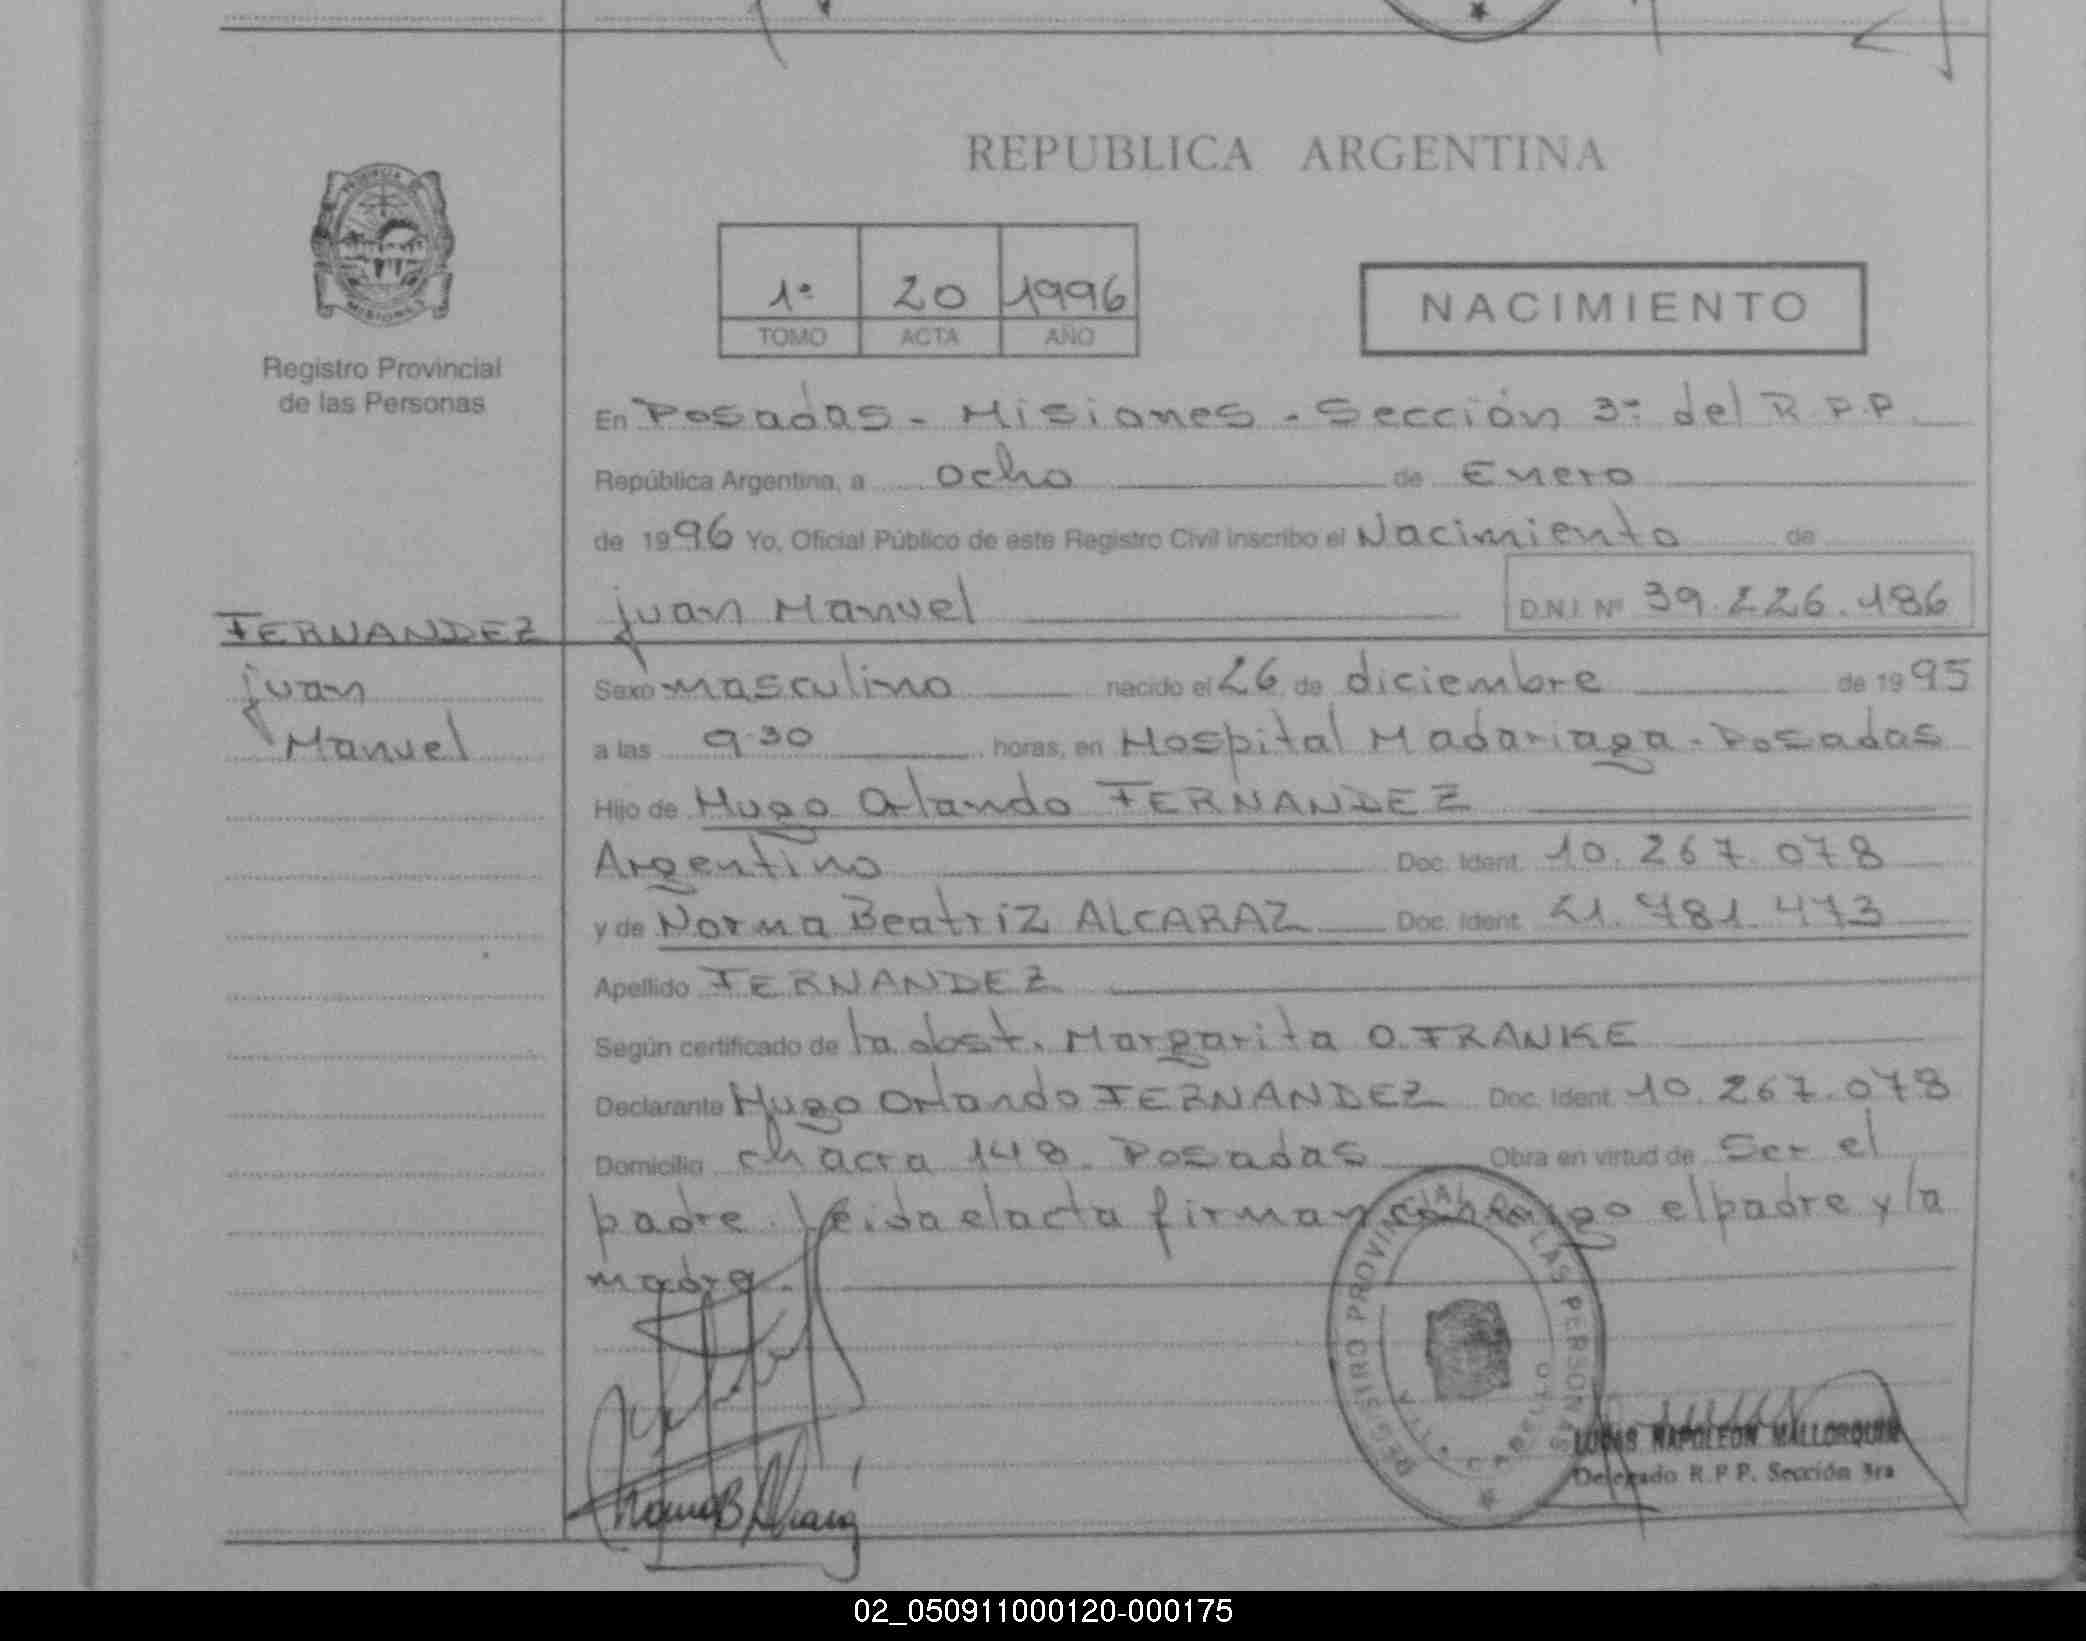 REPUBLICA ARGENTINA
PROVINCIA DE
MISIONES
Registro Provincial
de las Personas
1º 20 1996
TOMO ACTA AÑO
NACIMIENTO
En Posadas - Misiones - Sección 3ª del R.P.P.
República Argentina, a ocho de Enero
de 1996 Yo, Oficial Público de este Registro Civil inscribo el Nacimiento de
Juan Manuel D.N.I. Nº 39.226.186
FERNANDEZ
Juan
Manuel
Sexo masculino nacido el 26 de diciembre de 1995
a las 9.30 horas, en Hospital Madariaga - Posadas
Hijo de Hugo Orlando FERNANDEZ
Argentino Doc. Ident. 10.267.078
y de Norma Beatriz ALCARAZ Doc. Ident. 21.781.473
Apellido FERNANDEZ
Según certificado de la obst. Margarita O. FRANKE
Declarante Hugo Orlando FERNANDEZ Doc. Ident. 10.267.078
Domicilio chacra 148 Posadas Obra en virtud de Ser el
padre. Leida el acta firman conmigo el padre y la
madre.
REGISTRO PROVINCIAL DE LAS PERSONAS
Norma B Alcaraz
LUCAS NAPOLEON MALLORQUIN
Delegado R.P.P. Sección 3ra
02_050911000120-000175